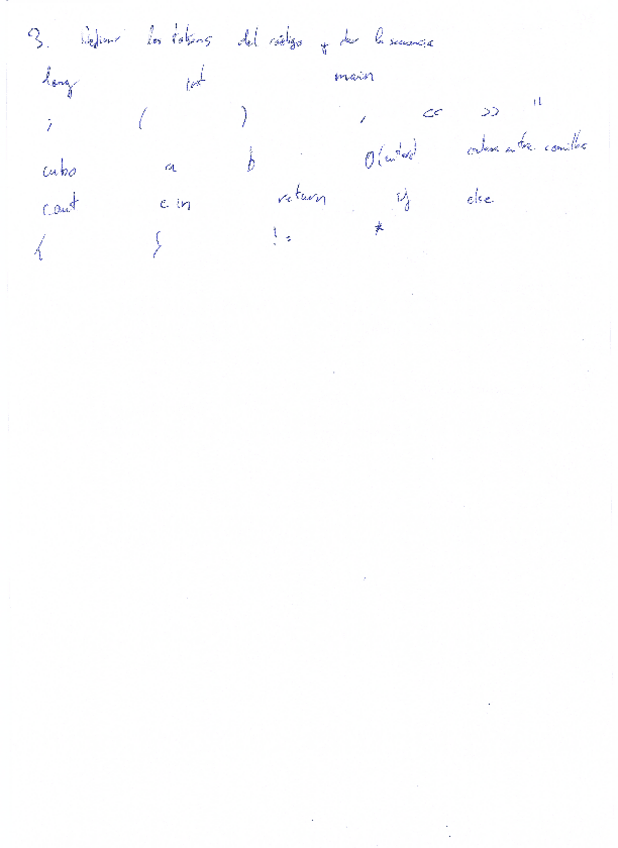 3. Definir los tokens del código y dar la secuencia
long int main
; ( ) , << >> "
cubo a b 0(entero) cadena entre comillas
cout cin return if else
{ } != *